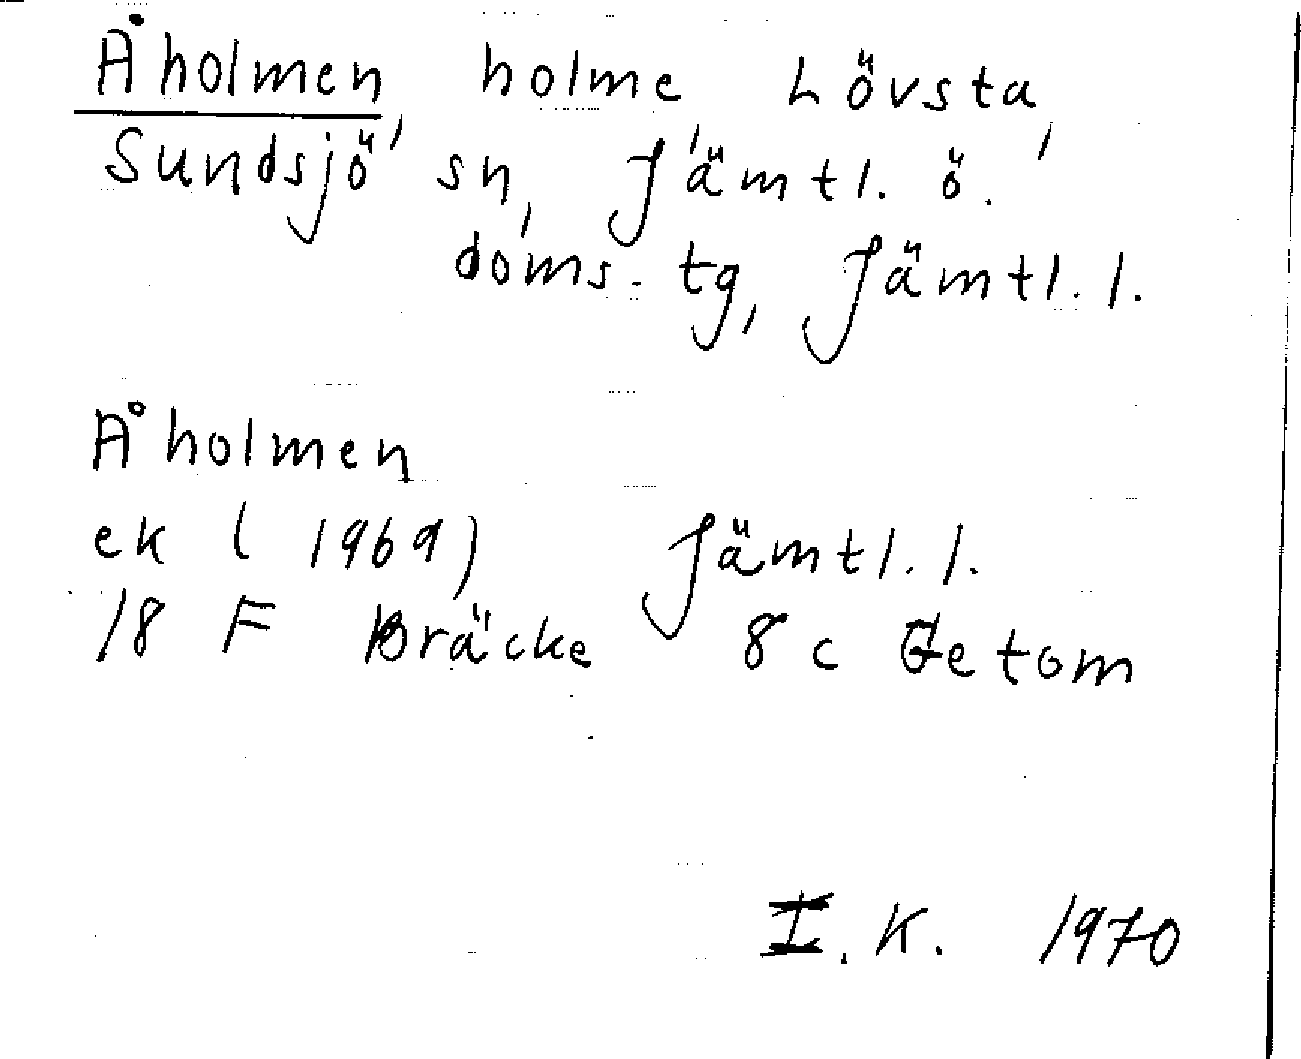 Åholmen, holme, Lövsta,
Sundsjö sn, Jämtl. ö.
doms. tg, Jämtl. l.
Åholmen
ek (1969) Jämtl. l.
18 F Bräcke 8 c Getom
I. K. 1970